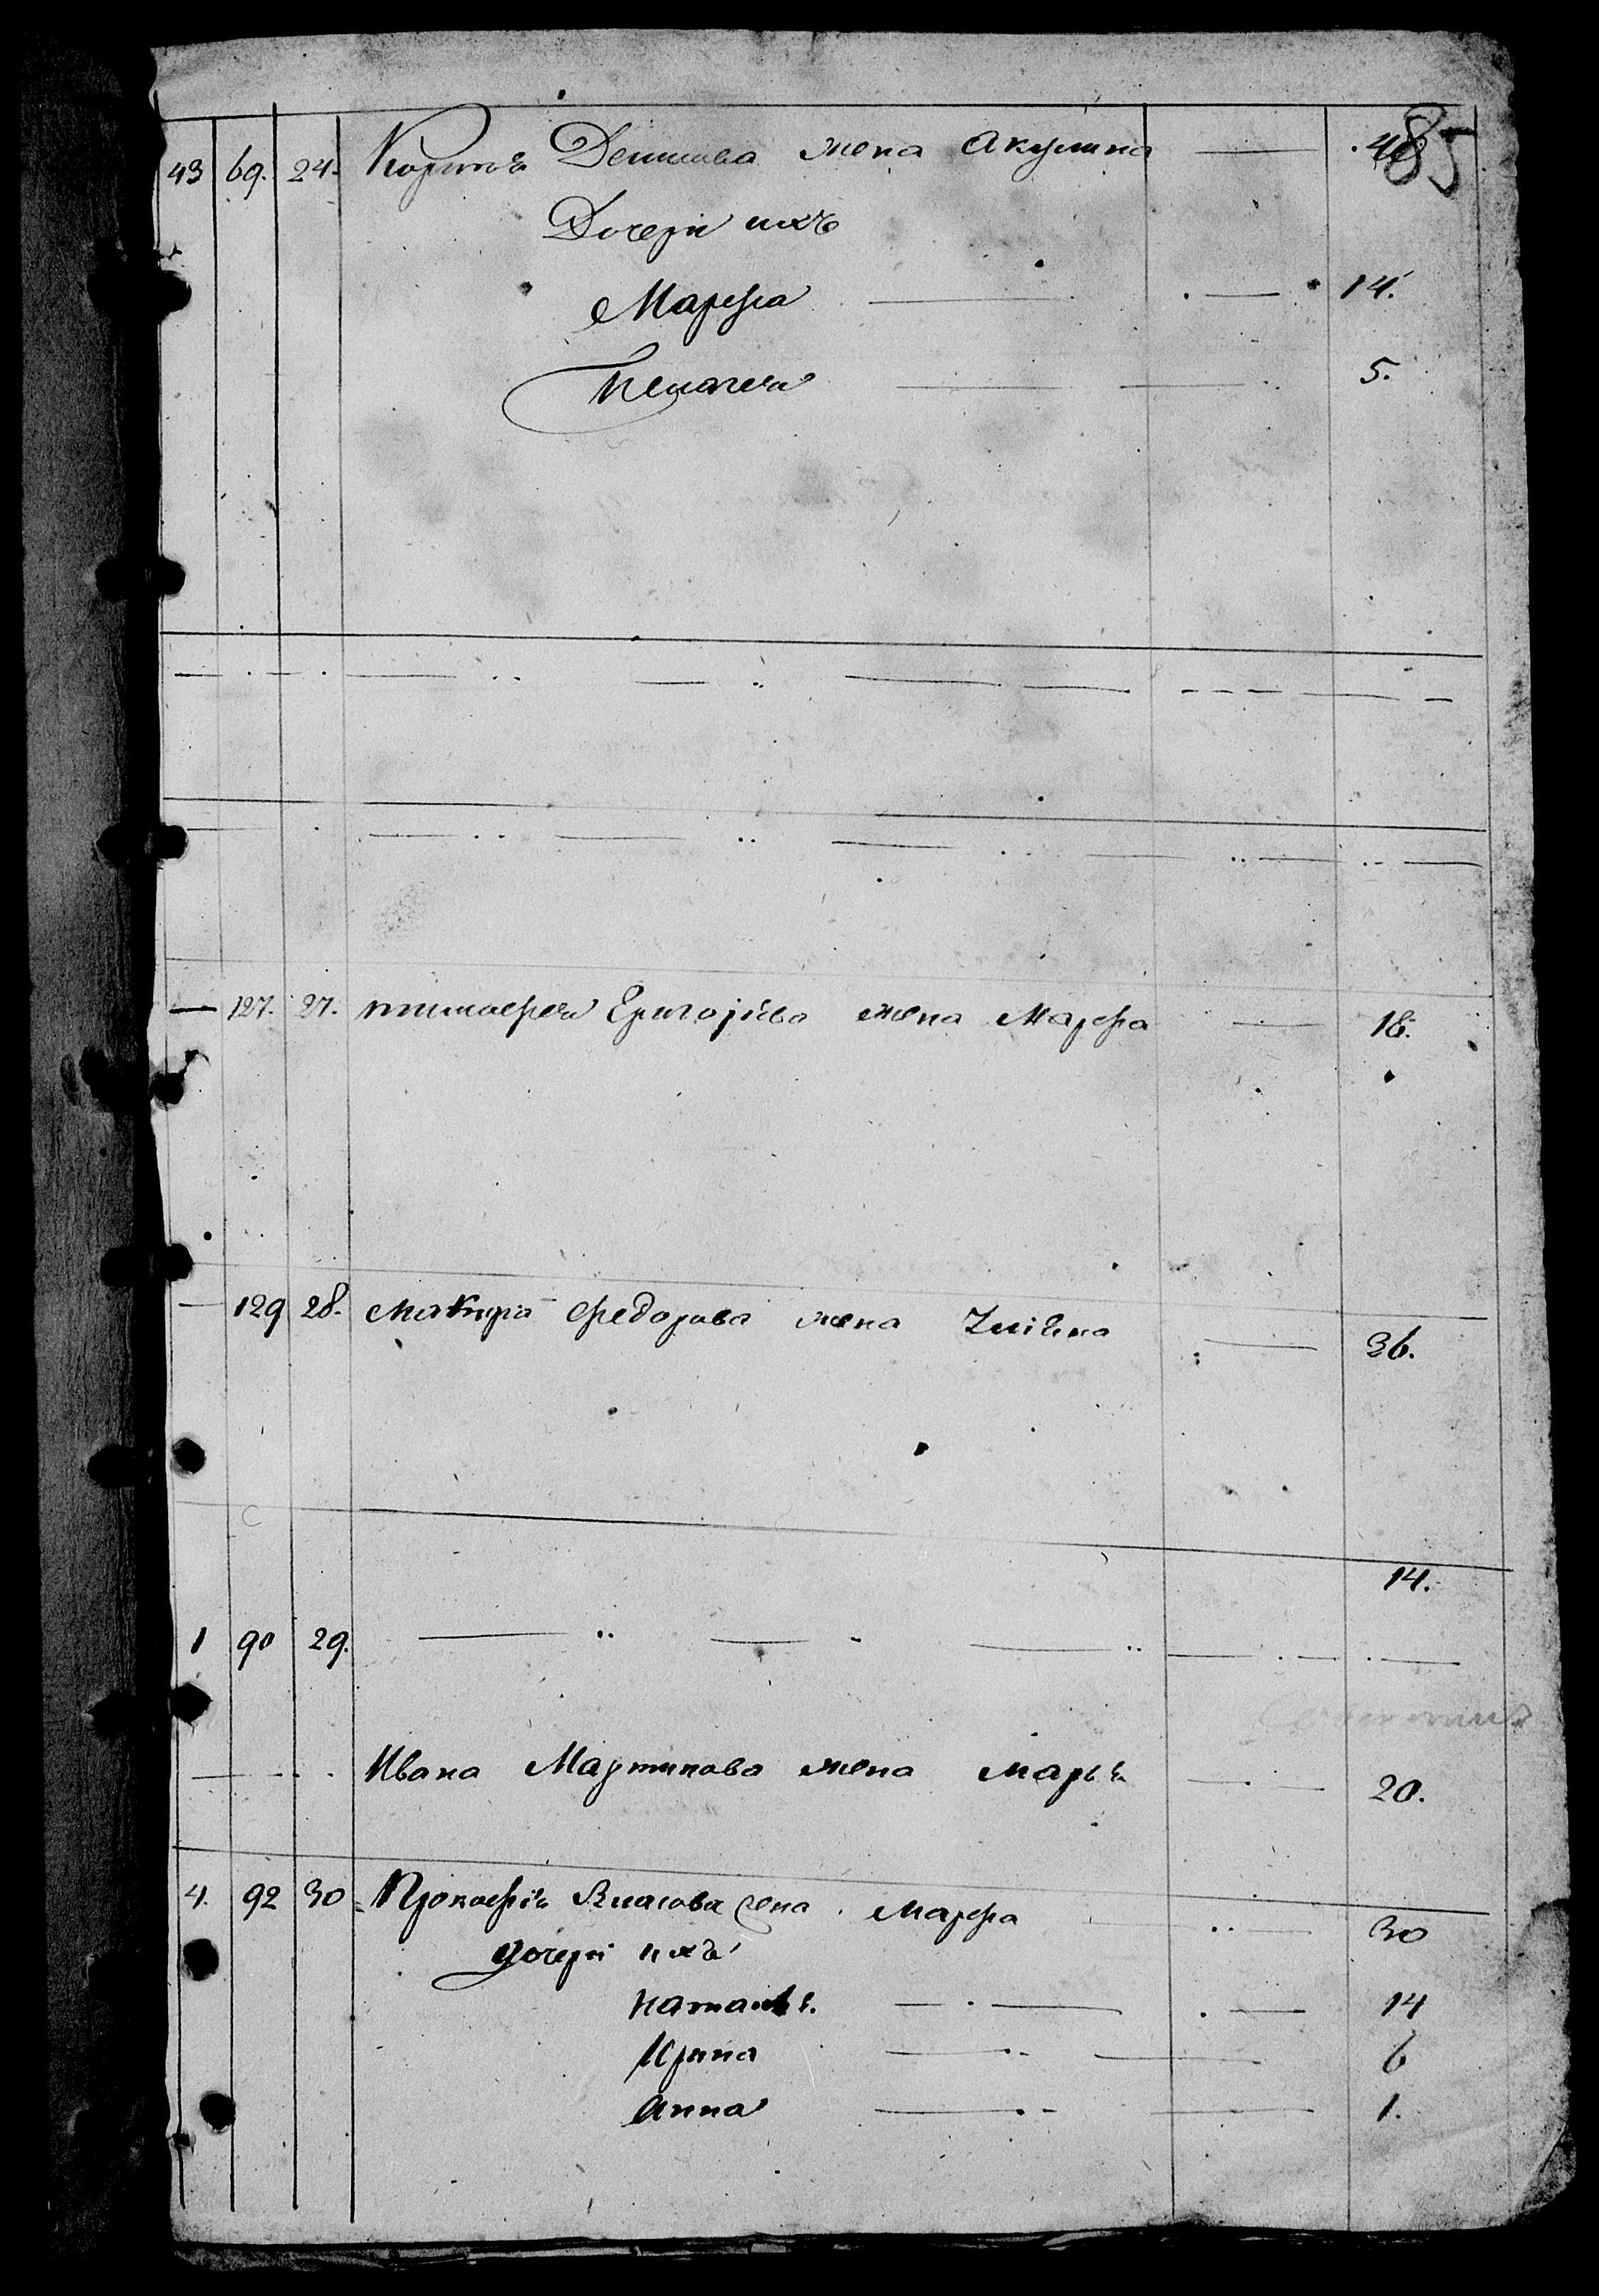 85
43 69. 24. Денисова жена Акулина
Дочери ихъ
Марфа 14.
Пелагея 5.
127. 27. тимофея Григорьева жена Марфа 18.
129 28. Федорова жена 36.
14.
1 90 29.
Ивана Мартинова жена Марья 20.
4. 92 30 Прокофія Власова жена Марфа 30
дочери ихъ
наталья 14
Ирина 6
Анна 1.